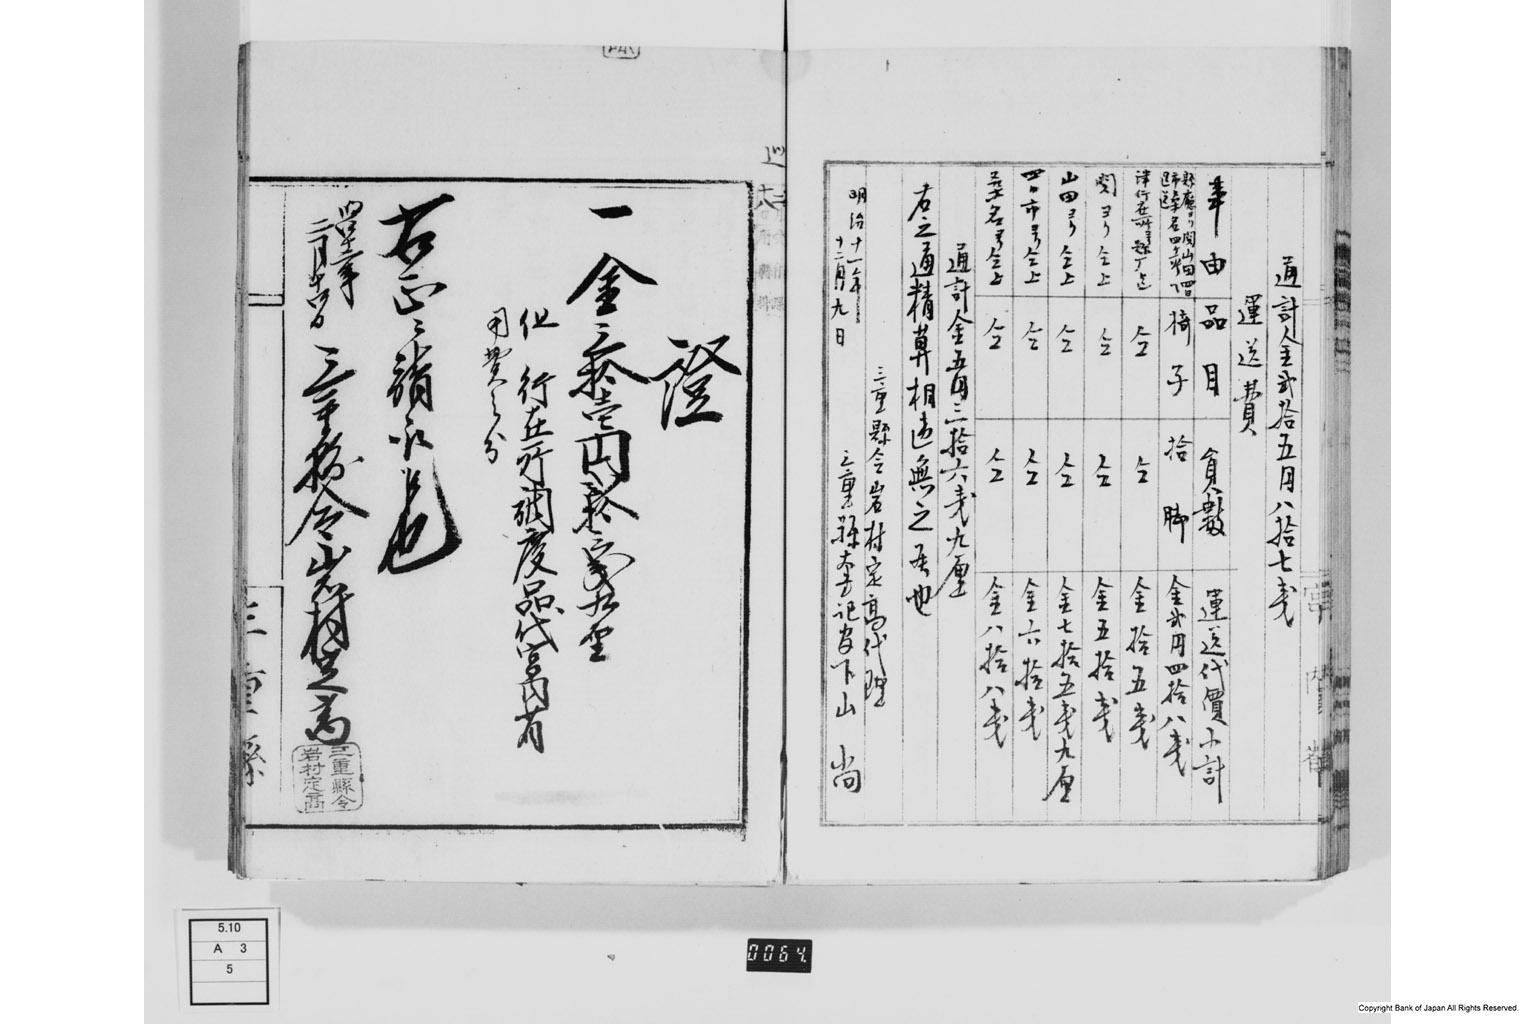 通計金弐拾五円八拾七銭
運送費
事由 品目 負数 運送代價小計
縣廳ヨリ関山田四日市桑名四ヶ所ヘ逓送 椅子 拾脚 金弐円四拾八銭
津行在所ヨリ縣庁ヘ上 仝 仝 金拾五銭
関ヨリ仝上 仝 仝 金五拾銭
山田ヨリ仝上 仝 仝 金七拾五銭九厘
四日市ヨリ仝上 仝 仝 金六拾銭
桑名ヨリ仝上 仝 仝 金八拾八銭
通計金五円三拾六銭九厘
右之通精算相違無之候也
三重縣令岩村定高代理
明治十一年十二月九日 三重縣大書記官下山尚
證
一金三拾壱円拾銭九厘
但行在所調度品代宮内省
用費之分
右正ニ領収候也
明治十二年
二月十四日 三重縣令岩村定高
三重縣令
岩村定高
三重縣
5.10
A 3
5
0064.
Copyright Bank of Japan All Rights Reserved.